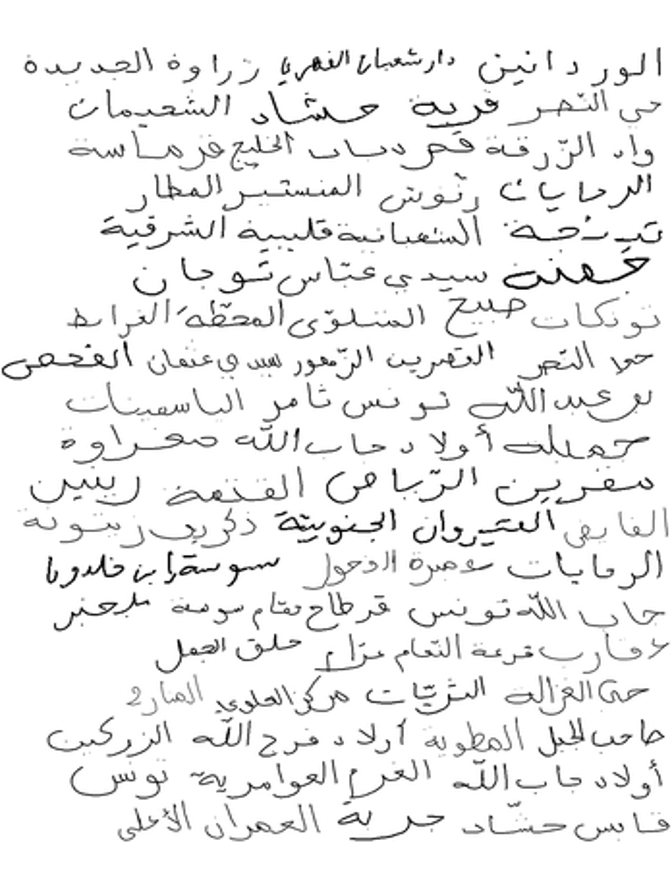 الوردانين دار شعبان الفهري زراوة الجديدة
حي النصر قرية حشاد الشعيمات
واد الزرقة قصر دباب الخليج فرماسة
الرمايات رنوش المنستير المطار
الشعبانية قليبية الشرقية
سيدي عباس توجان
تونكات صبيح المتلوي المحطة الخرايط
النصر القصرين الزهور سيدي عثمان الفحص
بوعبد الله تونس ثامر الياسمينات
جميلة أولاد جاب الله صحراوة
سفرين الرياض القنعة
الفايض القيروان الجنوبية ذكريت زيتونة
الرمايات الدخول سوسة ابن خلدون
جاب الله تونس قرطاج مقام سوسة
قرعة النعام عرام حلق الجمل
حي الغزالة التريات مركز العلوي المنار 2
صاحب الجبل المطوية أولاد فرج الله الزركين
أولاد جاب الله العوامرية تونس
قابس حشاد جربة العمران الأعلى